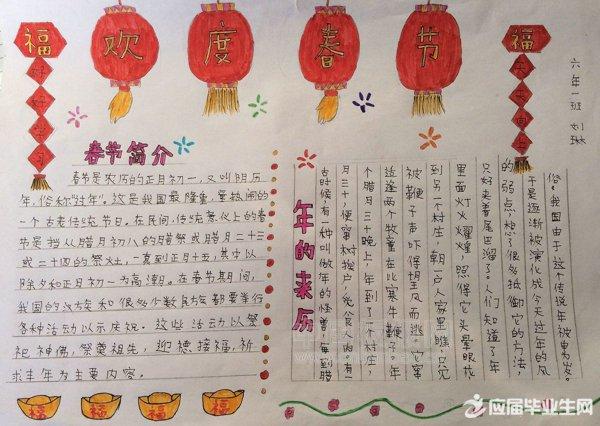 欢度春节
福
好好学习
福
天天向上
六年一班 刘琳
春节简介
春节是农历的正月初一,又叫阴历
年,俗称"过年"。这是我国最隆重、最热闹的
一个古老传统节日。在民间,传统意义上的春
节是指从腊月初八的腊祭或腊月二十三
或二十四的祭灶,一直到正月十五,其中以
除夕和正月初一为高潮。在春节期间,
我国的汉族和很多少数民族都要举行
各种活动以示庆祝。这些活动以祭
祀神佛,祭奠祖先,迎禧接福,祈
求丰年为主要内容。
年的来历
古时候有一种叫做年的怪兽,每到腊
月三十,便窜村挨户,觅食人肉。有一
个腊月三十晚上,年到了一个村庄,
适逢两个牧童在比赛牛鞭子。年
被鞭子声吓得望风而逃。它窜
到另一个村庄,朝一户人家里瞧,只见
里面灯火耀煌,照得它头晕眼花
只好夹着尾巴溜了。人们知道了年
的弱点,想了很多抵御它的方法,
于是逐渐被演化成今天过年的风
俗。我国由于这个传说年被
福
福
福
福
应届毕业生网